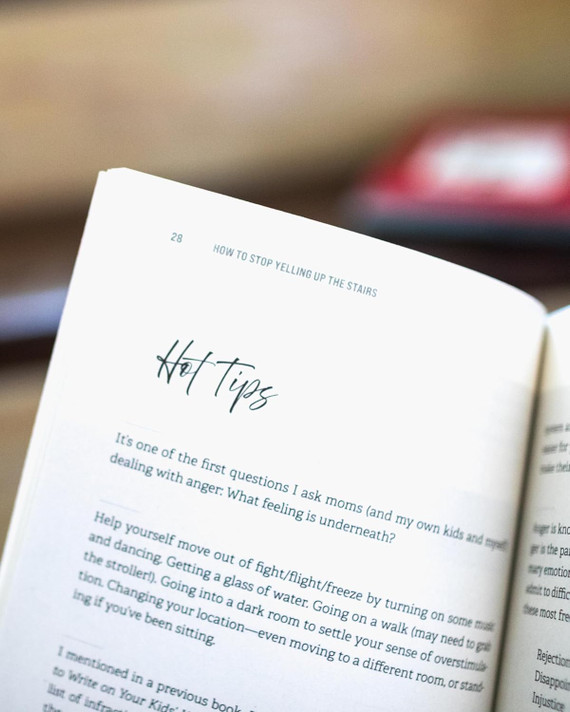 28
HOW TO STOP YELLING UP THE STAIRS
Hot Tips
It's one of the first questions I ask moms (and my own kids and myself)
dealing with anger: What feeling is underneath?
Help yourself move out of fight/flight/freeze by turning on some music
and dancing. Getting a glass of water. Going on a walk (may need to grab
the stroller!). Going into a dark room to settle your sense of overstimula-
tion. Changing your location—even moving to a different room, or stand-
ing if you've been sitting.
I mentioned in a previous book,
to Write on Your Kids'
list of
the
Rejection
Disappoin
Injustice